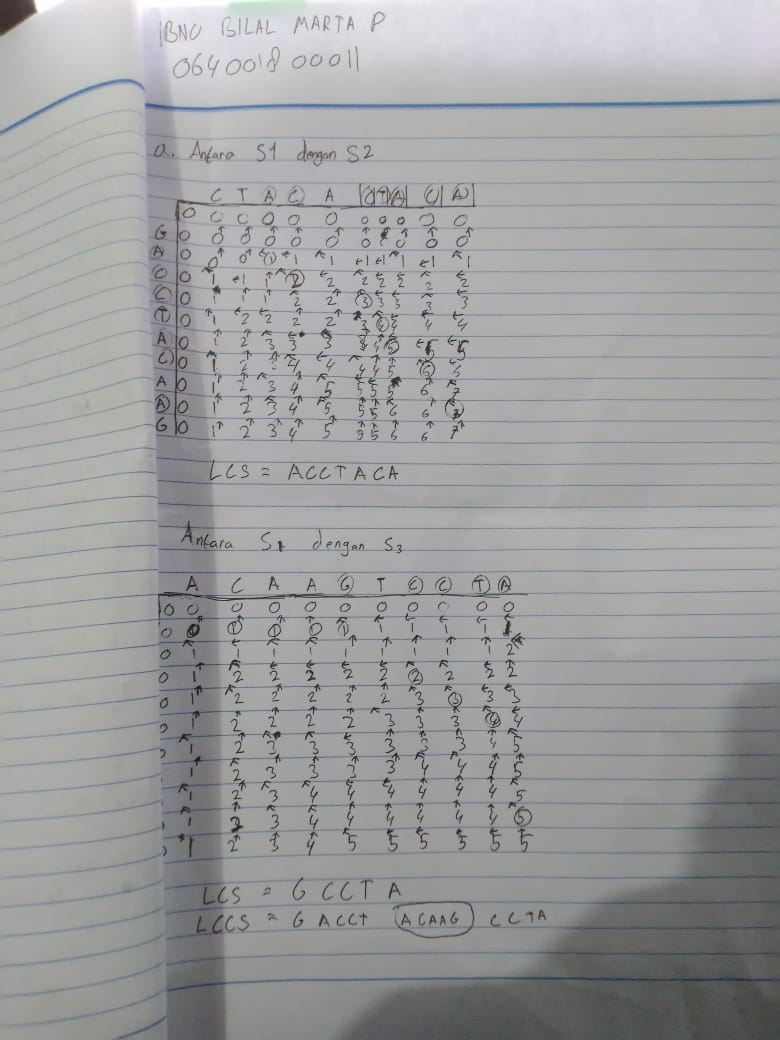 IBNU BILAL MARTA P
064001800011
a. Antara S1 dengan S2
C T A C A C T A C A
0 0 0 0 0 0 0 0 0 0 0
G 0 0 0 0 0 0 0 0 0 0 0
A 0 0 0 1 1 1 1 1 1 1 1
C 0 1 1 1 2 2 2 2 2 2 2
C 0 1 1 1 2 2 3 3 3 3 3
T 0 1 2 2 2 2 3 4 4 4 4
A 0 1 2 3 3 3 3 4 5 5 5
C 0 1 2 3 4 4 4 4 5 6 6
A 0 1 2 3 4 5 5 5 5 6 7
A 0 1 2 3 4 5 5 5 6 6 7
G 0 1 2 3 4 5 5 5 6 6 7
LCS = ACCTACA
Antara S1 dengan S3
A C A A G T C C T A
0 0 0 0 0 0 0 0 0 0 0
0 0 0 0 0 1 1 1 1 1 1
0 1 1 1 1 1 1 1 1 1 2
0 1 2 2 2 2 2 2 2 2 2
0 1 2 2 2 2 2 3 3 3 3
0 1 2 2 2 2 3 3 3 4 4
1 2 3 3 3 3 3 3 4 5
1 2 3 3 3 3 4 4 4 5
1 2 3 4 4 4 4 4 4 5
1 2 3 4 4 4 4 4 4 5
1 2 3 4 5 5 5 5 5 5
LCS = G C C T A
LCCS = G ACCT ACAAG CCTA